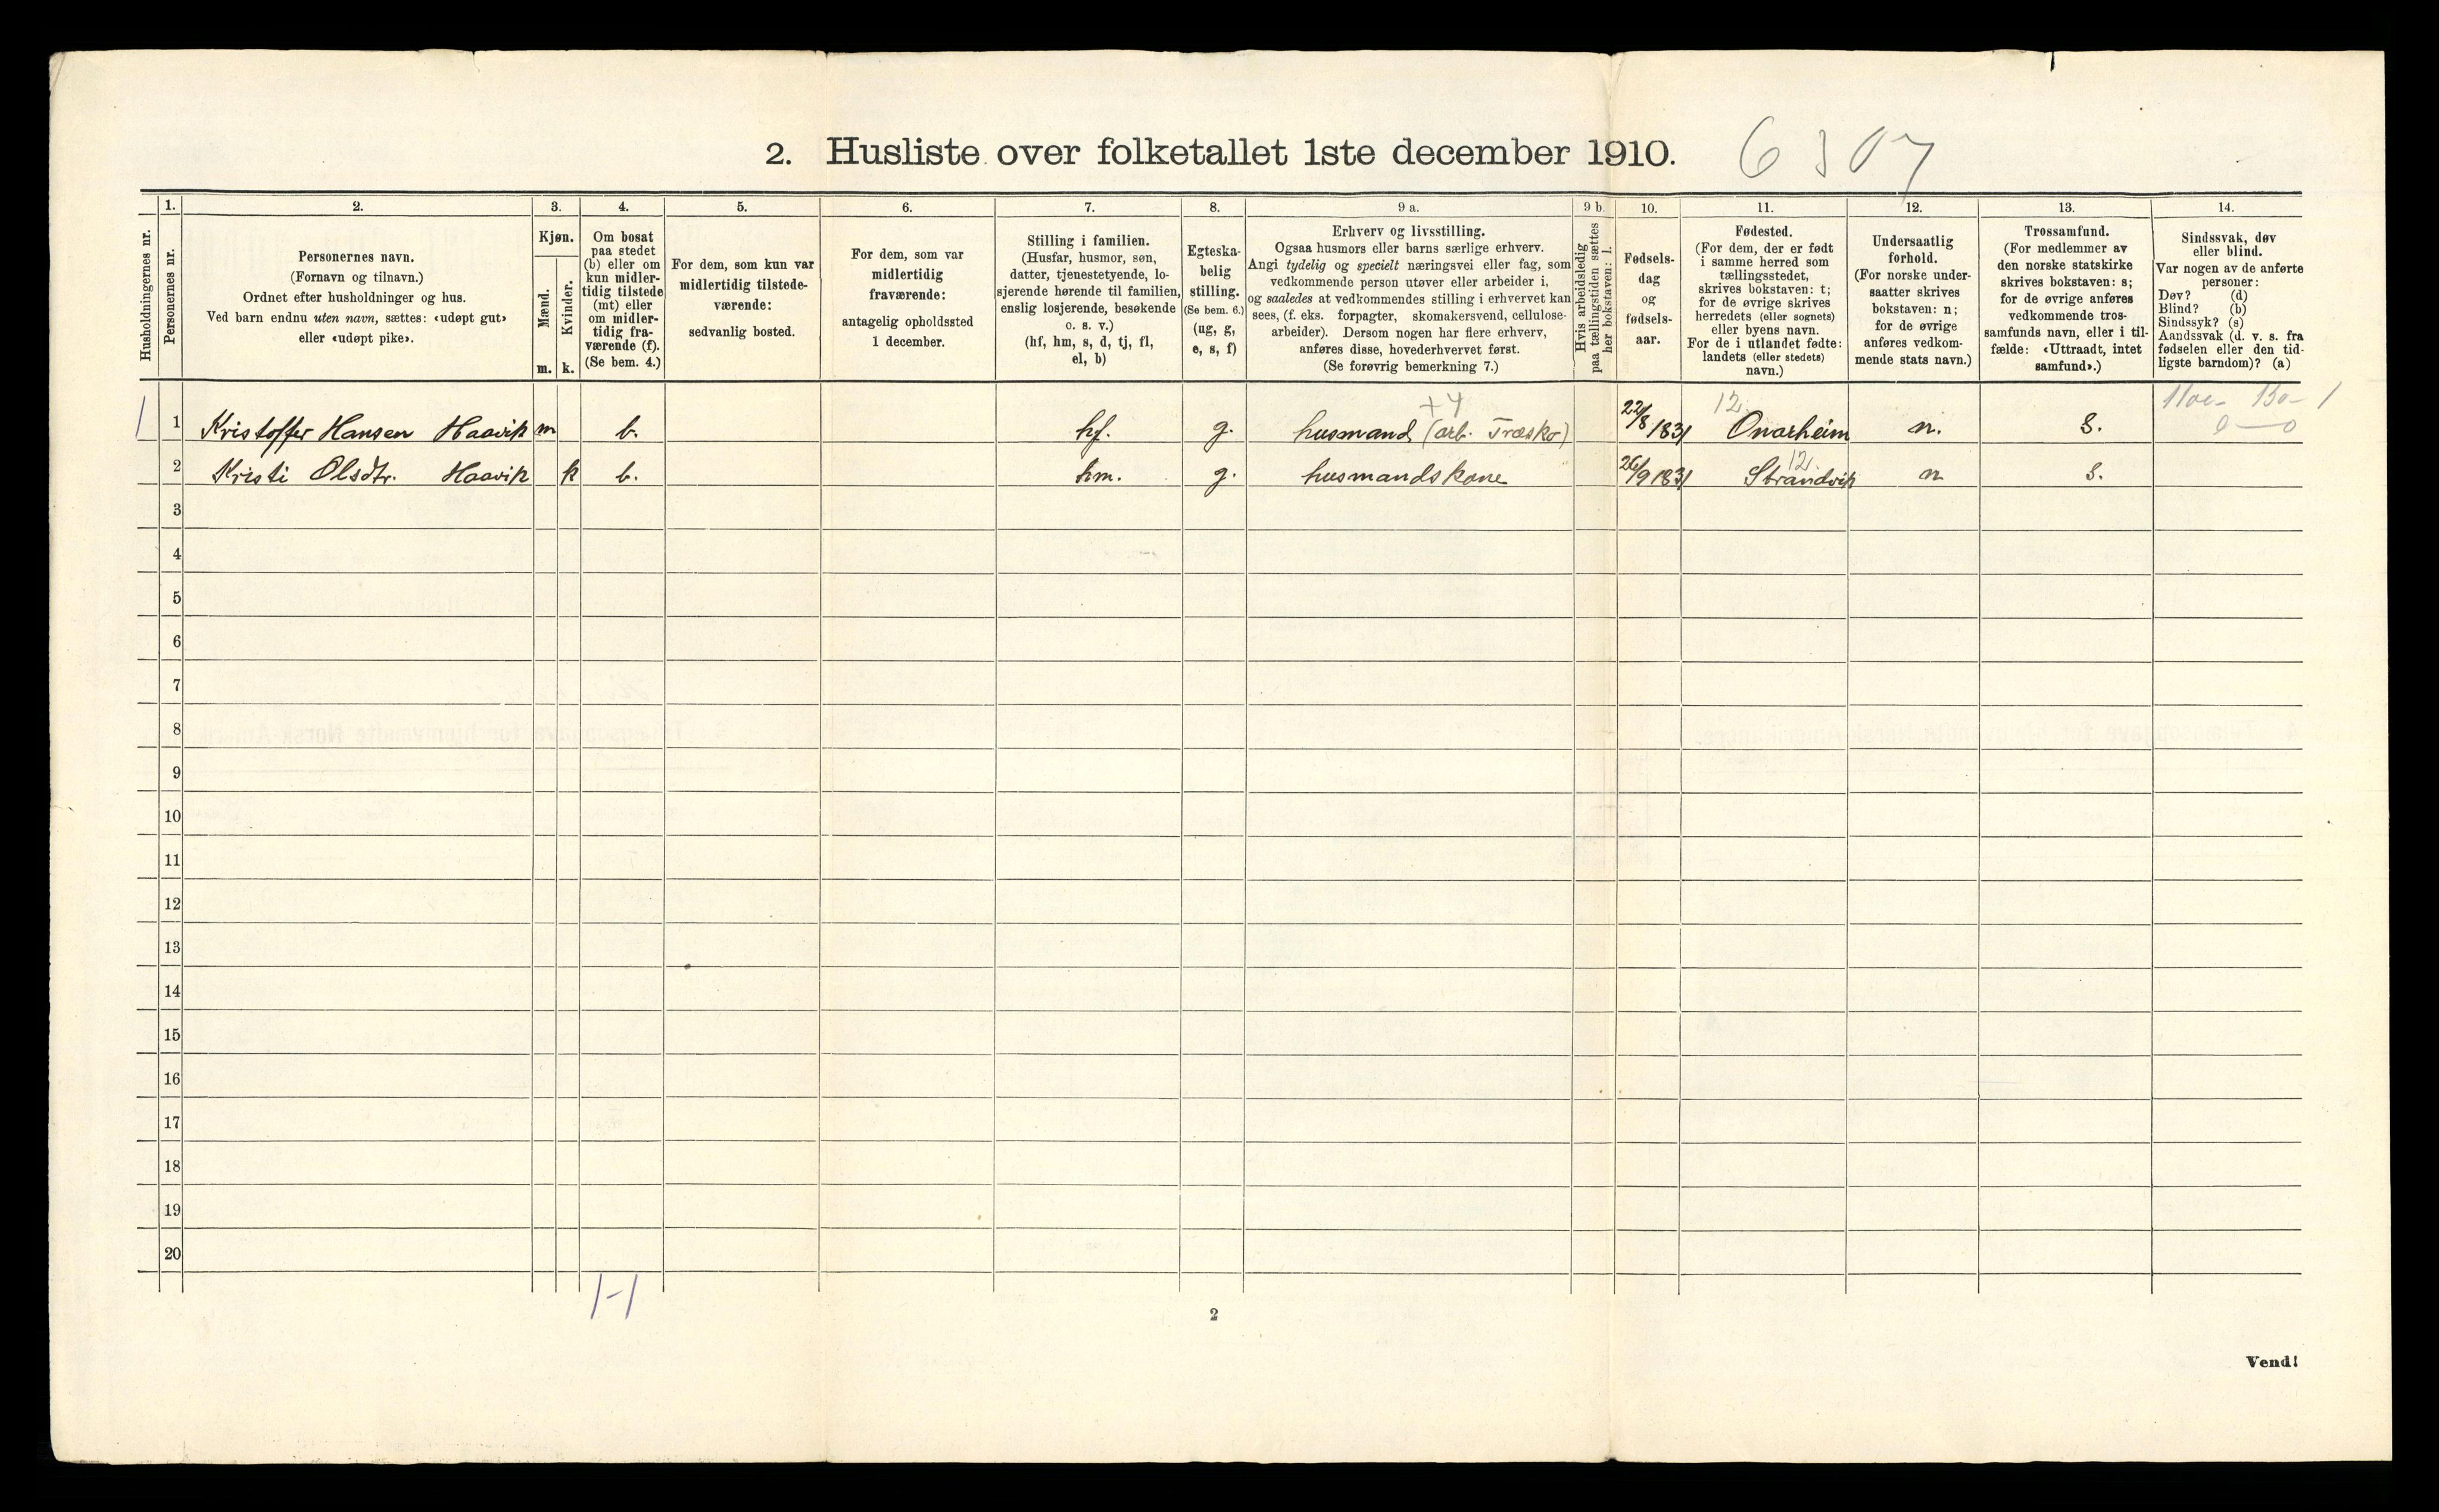 2. Husliste over folketallet 1ste december 1910. 6307
Husholdningernes nr.
1.
Personernes nr.
2.
Personernes navn.
(Fornavn og tilnavn.)
Ordnet efter husholdninger og hus.
Ved barn endnu uten navn, sættes: «udøpt gut»
eller «udøpt pike».
3.
Kjøn.
Mænd.
m.
Kvinder.
k.
4.
Om bosat
paa stedet
(b) eller om
kun midler-
tidig tilstede
(mt) eller
om midler-
tidig fra-
værende (f).
(Se bem. 4.)
5.
For dem, som kun var
midlertidig tilstede-
værende:
sedvanlig bosted.
6.
For dem, som var
midlertidig
fraværende:
antagelig opholdssted
1 december.
7.
Stilling i familien.
(Husfar, husmor, søn,
datter, tjenestetyende, lo-
sjerende hørende til familien,
enslig losjerende, besøkende
o. s. v.)
(hf, hm, s, d, tj, fl,
el, b)
8.
Egteska-
belig
stilling.
(Se bem. 6.)
(ug, g,
e, s, f)
9 a.
Erhverv og livsstilling.
Ogsaa husmors eller barns særlige erhverv.
Angi tydelig og specielt næringsvei eller fag, som
vedkommende person utøver eller arbeider i,
og saaledes at vedkommendes stilling i erhvervet kan
sees, (f. eks. forpagter, skomakersvend, cellulose-
arbeider). Dersom nogen har flere erhverv,
anføres disse, hovederhvervet først.
(Se forøvrig bemerkning 7.)
9 b.
Hvis arbeidsledig
paa tællingstiden sættes
her bokstaven: l.
10.
Fødsels-
dag
og
fødsels-
aar.
11.
Fødested.
(For dem, der er født
i samme herred som
tællingsstedet,
skrives bokstaven: t;
for de øvrige skrives
herredets (eller sognets)
eller byens navn.
For de i utlandet fødte:
landets (eller stedets)
navn.)
12.
Undersaatlig
forhold.
(For norske under-
saatter skrives
bokstaven: n;
for de øvrige
anføres vedkom-
mende stats navn.)
13.
Trossamfund.
(For medlemmer av
den norske statskirke
skrives bokstaven: s;
for de øvrige anføres
vedkommende tros-
samfunds navn, eller i til-
fælde: «Uttraadt, intet
samfund».)
14.
Sindssvak, døv
eller blind.
Var nogen av de anførte
personer:
Døv? (d)
Blind? (b)
Sindssyk? (s)
Aandssvak (d. v. s. fra
fødselen eller den tid-
ligste barndom)? (a)
+4 12
1 1 Kristoffer Hansen Haavik m b. hf. g. husmand (arb. Træsko) 22/8 1831 Onarheim n. s. 0—0
12
2 Kristi Olsdtr. Haavik k b. hm. g. husmandskone 26/9 1831 Strandvik n s.
3
4
5
6
7
8
9
10
11
12
13
14
15
16
17
18
19
20
1-1
2
Vend!